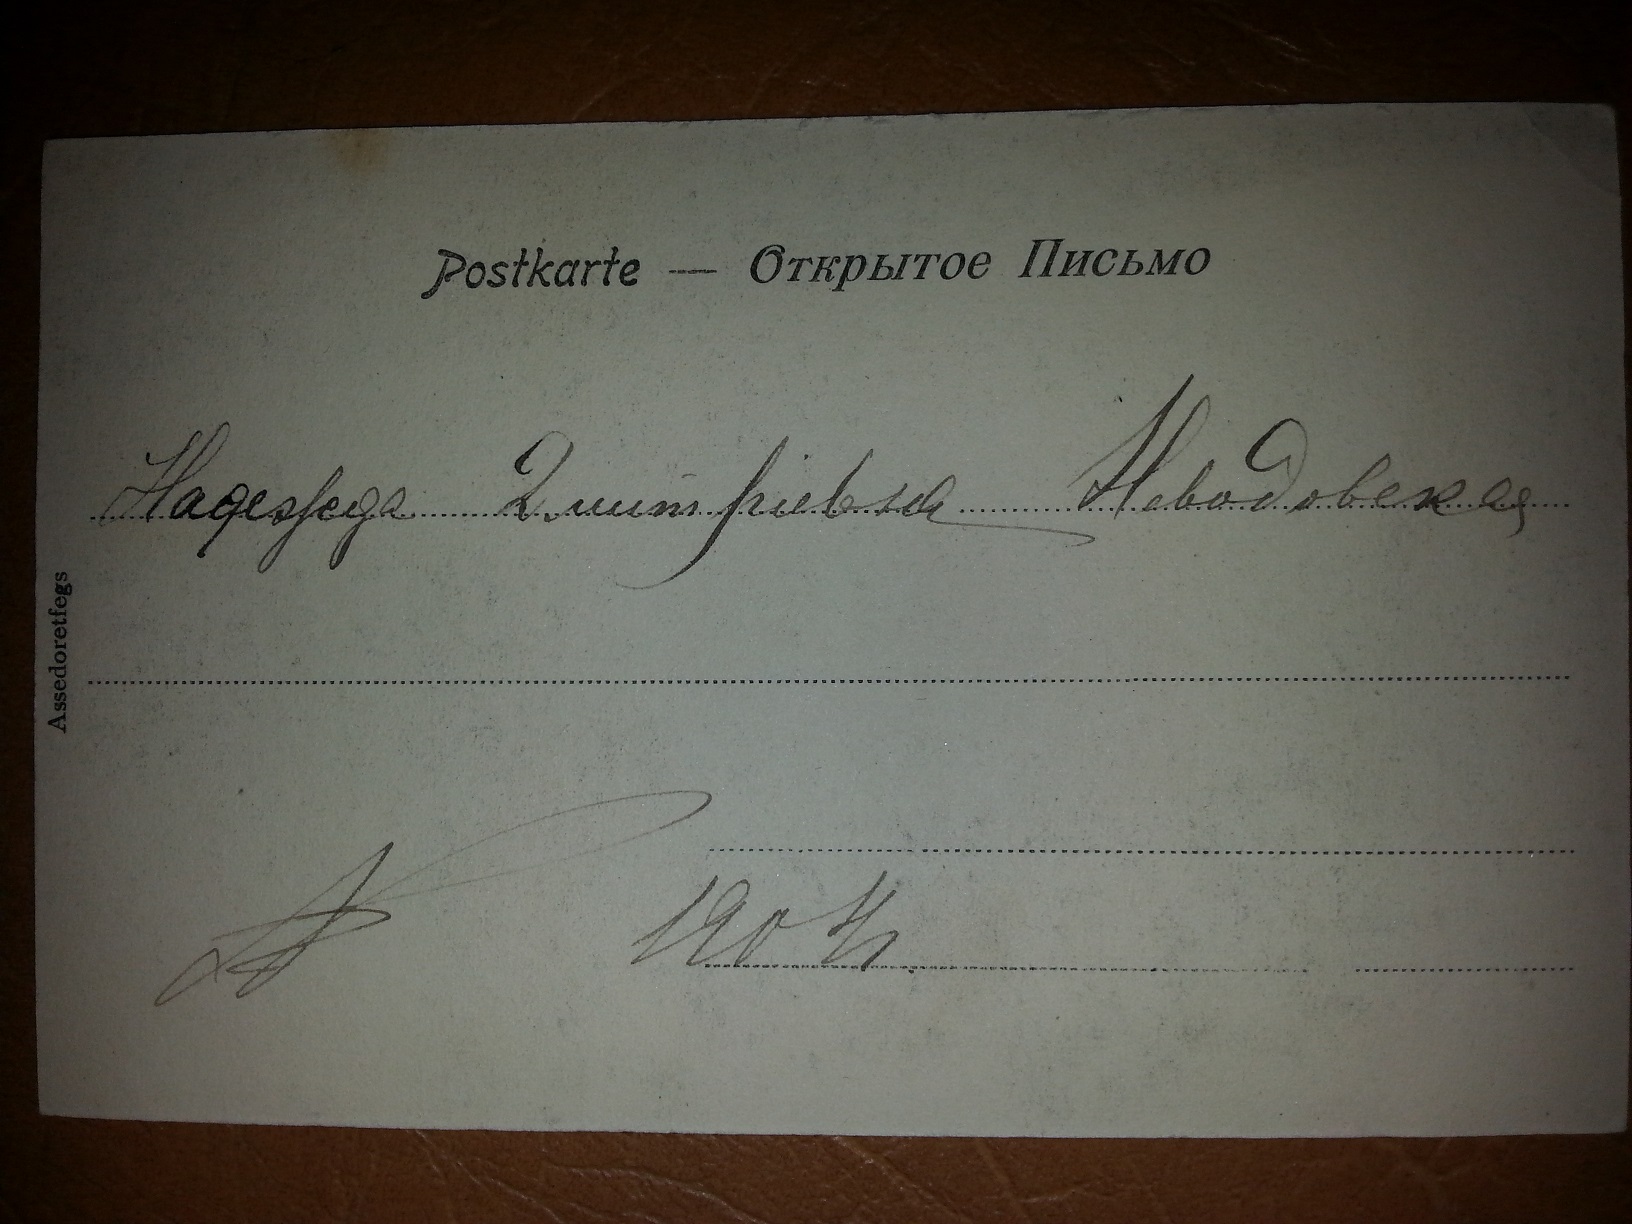 Postkarte — Открытое Письмо
Надежда Дмитріевна Неводовская
Assedoretfegs
1904